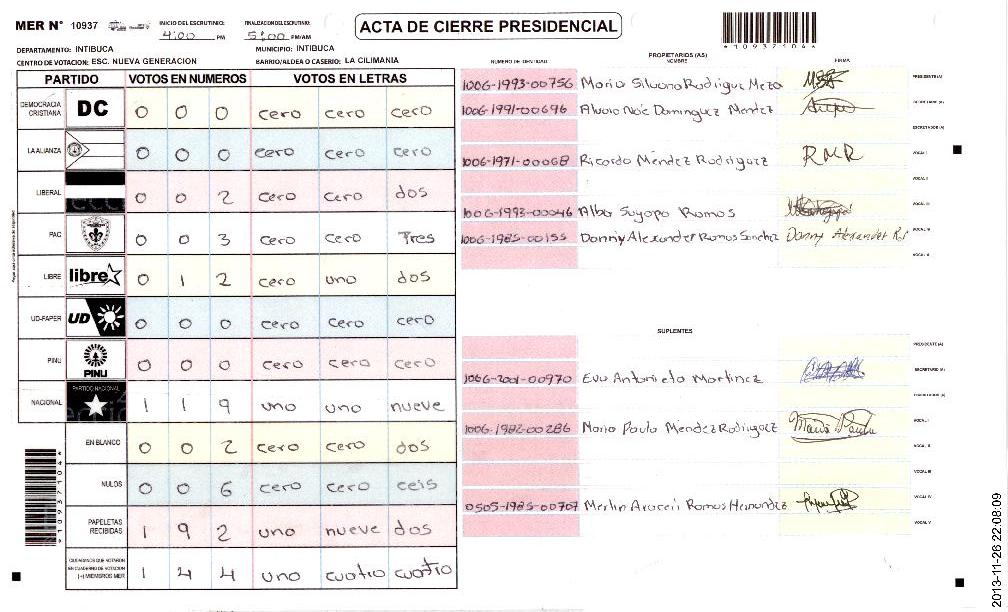 MER N° 10937
INICIO DEL ESCRUTINIO: 4:00 PM
FINALIZACION DEL ESCRUTINIO: 5:00 PM/AM
ACTA DE CIERRE PRESIDENCIAL
*109371046*
DEPARTAMENTO: INTIBUCA
MUNICIPIO: INTIBUCA
CENTRO DE VOTACION: ESC. NUEVA GENERACION
BARRIO/ALDEA O CASERIO: LA CILIMANIA
PARTIDO VOTOS EN NUMEROS VOTOS EN LETRAS
DEMOCRACIA CRISTIANA DC 0 0 0 cero cero cero
LA ALIANZA 0 0 0 cero cero cero
LIBERAL 0 0 2 cero cero dos
PAC 0 0 3 cero cero Tres
LIBRE libre 0 1 2 cero uno dos
UD-FAPER UD 0 0 0 cero cero cero
PINU PINU 0 0 0 cero cero cero
NACIONAL PARTIDO NACIONAL 1 1 9 uno uno nueve
EN BLANCO 0 0 2 cero cero dos
NULOS 0 0 6 cero cero ceis
PAPELETAS RECIBIDAS 1 9 2 uno nueve dos
CIUDADANOS QUE VOTARON EN CUADERNO DE VOTACION (+) MIEMBROS MER 1 4 4 uno cuatro cuatro
*109371046*
NUMERO DE IDENTIDAD PROPIETARIOS (AS) NOMBRE FIRMA
1006-1993-00756 Mario Silvano Rodriguez Meza PRESIDENTE(A)
1006-1991-00696 Alvaro Noé Dominguez Mendez SECRETARIO (A)
ESCRUTADOR (A)
1006-1971-00068 Ricardo Méndez Rodriguez RMR VOCAL I
VOCAL II
1006-1993-00046 Alba Suyapa Ramos VOCAL III
1006-1985-00155 Danny Alexander Ramos Sanchez Danny Alexander VOCAL IV
VOCAL V
SUPLENTES
PRESIDENTE (A)
1006-2001-00970 Eva Antonieta Martinez SECRETARIO (A)
ESCRUTADOR (A)
1006-1982-00286 Maria Paula Mendez Rodriguez Maria Paula VOCAL I
VOCAL II
VOCAL III
0505-1985-00707 Merlin Araceri Ramos Hernandez VOCAL IV
VOCAL V
2013-11-26 22:08:09